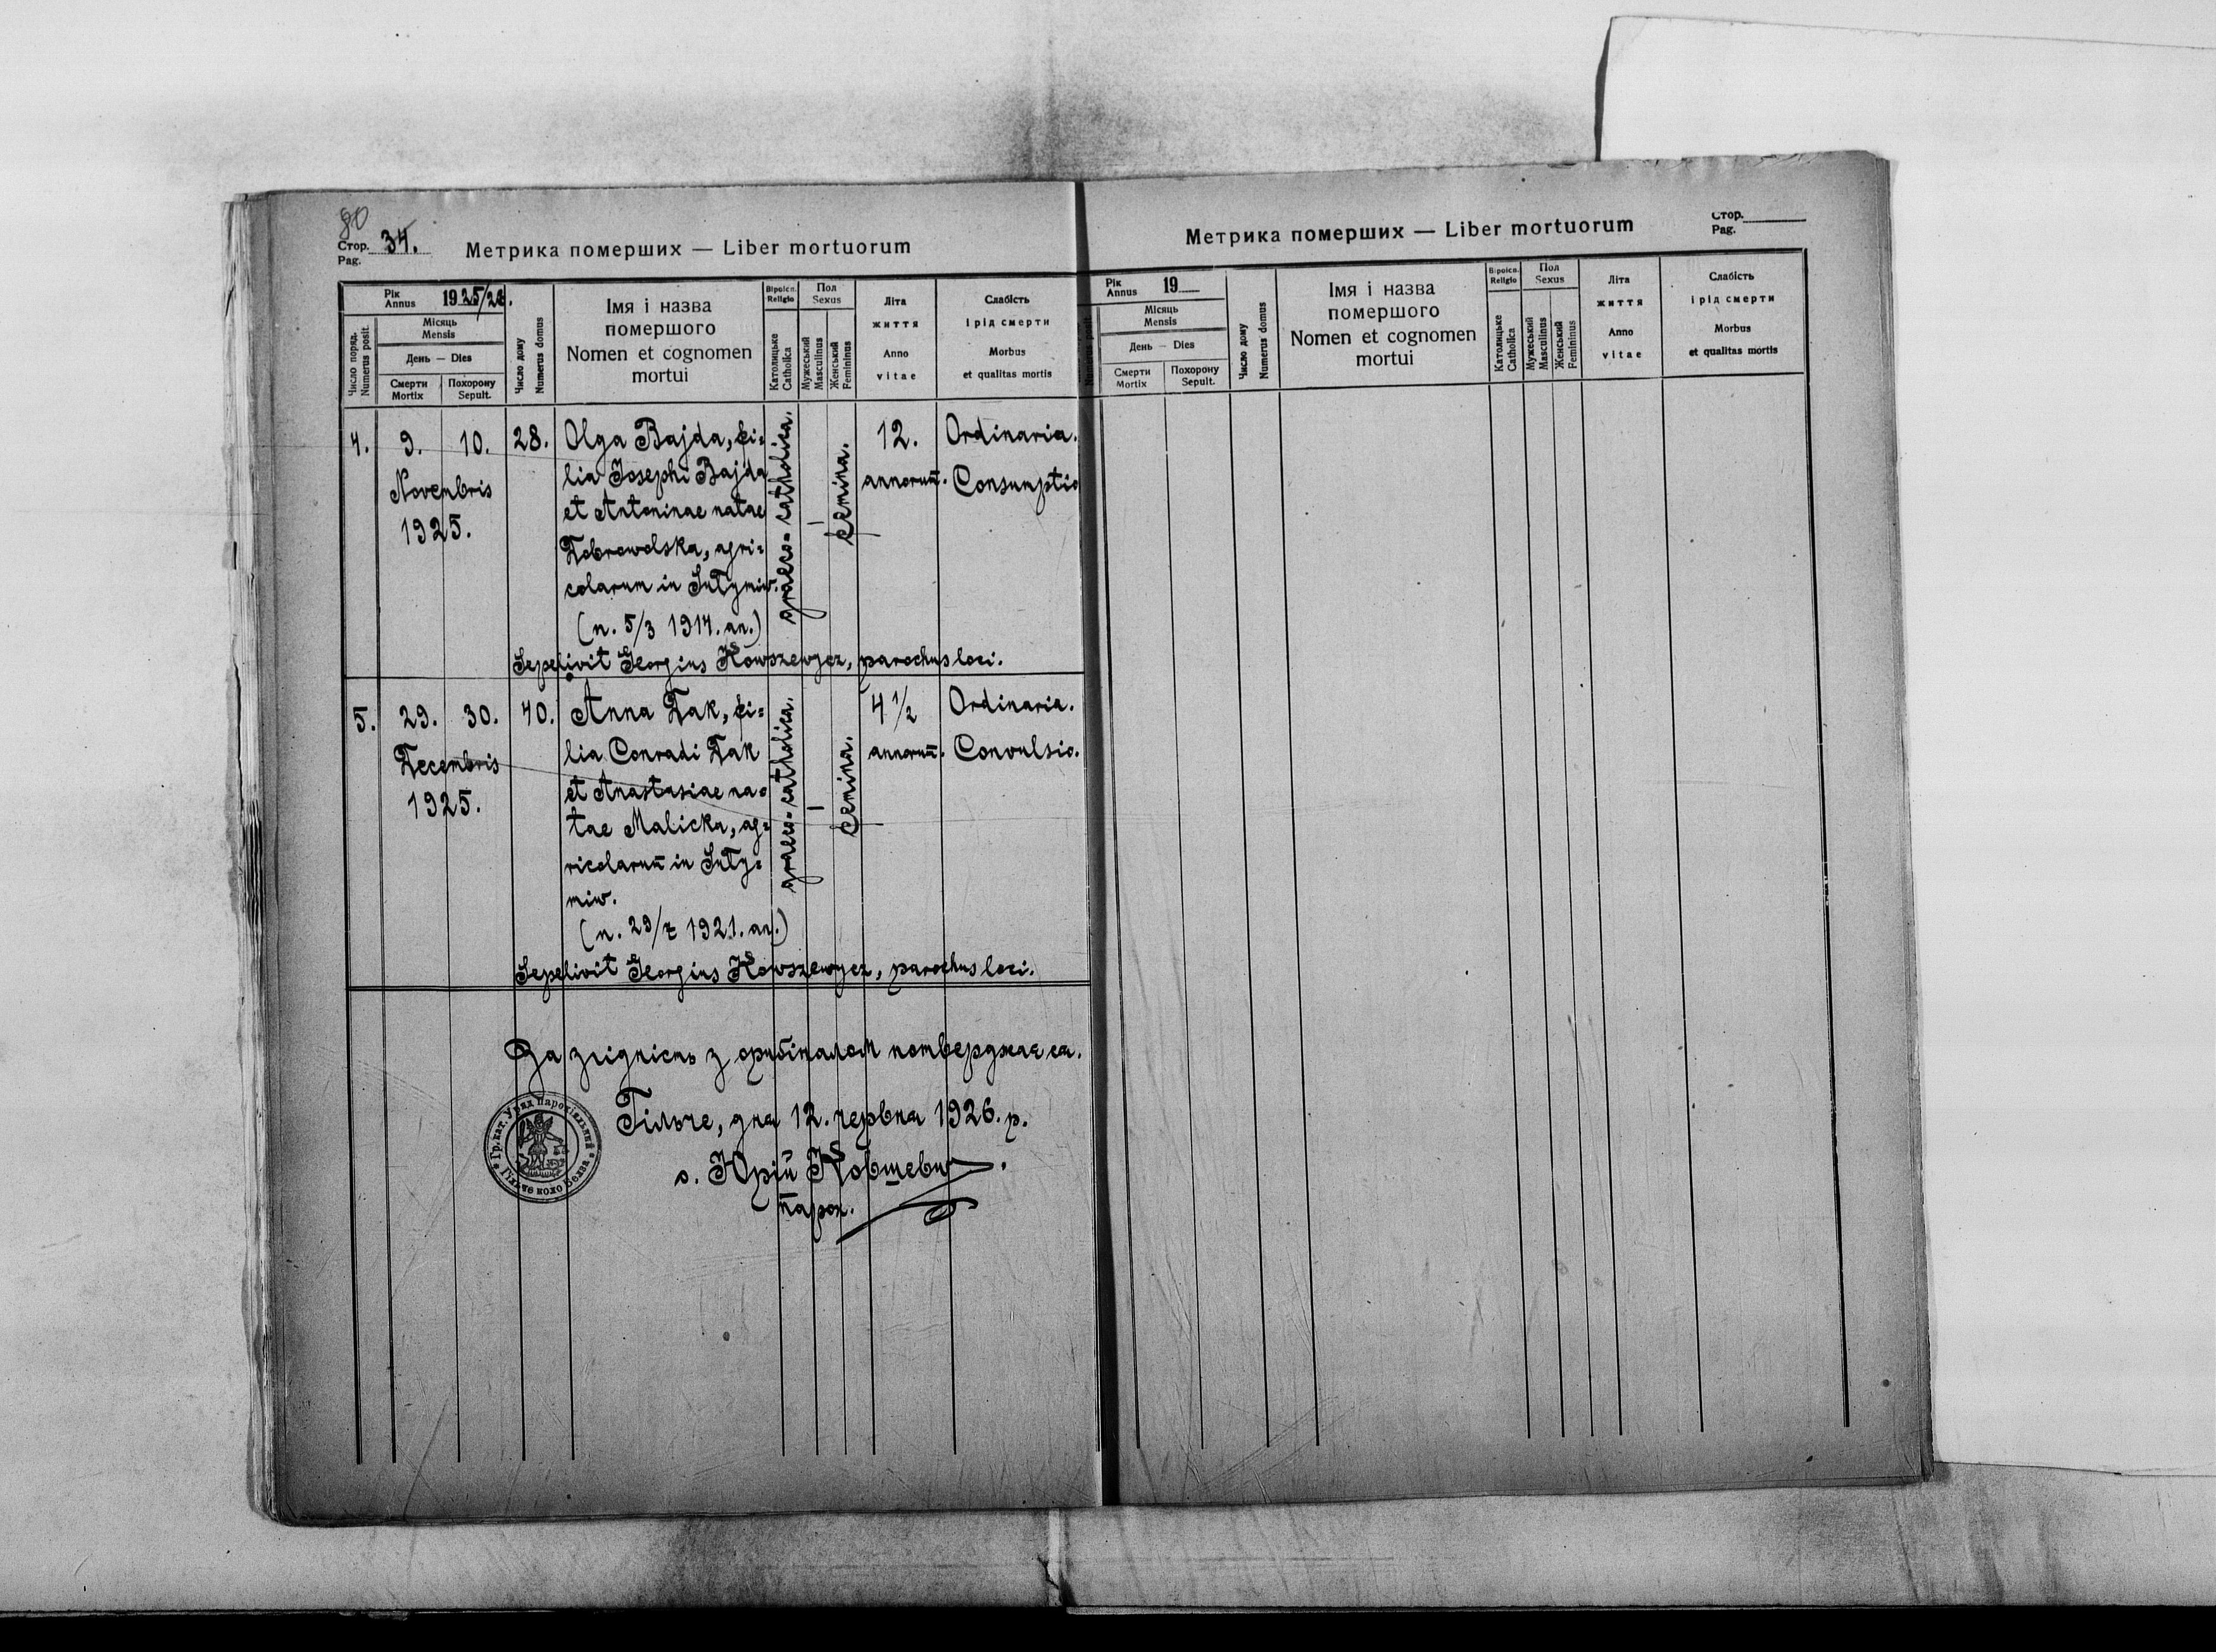 80
Стор. 34.
Pag.
Метрика померших — Liber mortuorum
Рік
Annus 1925/26.
Місяць
Mensis
День — Dies
Число поряд.
Numerus posit.
Смерти
Mortix
Похорону
Sepult.
Число дому
Numerus domus
Імя і назва
померщого
Nomen et cognomen
mortui
Віроісп.
Religio
Католицьке
Catholica
Пол
Sexus
Мужеський
Masculinus
Женський
Femininus
Літа
життя
Anno
vitae
Слабість
і рід смерти
Morbus
et qualitas mortis
4. 9. 10. 28. Olga Bajda, fi= 12. Ordinaria.
Novembris lia Josephi Bajda annorum̄. Consumptio
1925. et Antoninae natae
Dobrowolska, agri=
colarum in
(n. 5/3 1914. an.)
graeco-catholica.
—
femina.
Sepelivit Georgius Kowszewycz, parochus loci.
5. 29. 30. 40. Anna Dak, fi= 4 1/2 Ordinaria.
Decembris lia Conradi Dak annorum̄. Convulsio.
1925. et Anastasiae na=
tae Malicka, ag=
ricolarum̄ in
miw.
(n. 29/7 1921. an.)
graeco-catholica.
—
femina.
Sepelivit Georgius Kowszewycz, parochus loci.
За згідність з оригіналом потверджаєся.
Гільче, дня 12. червня 1926. р.
о. Юрій Ковшевич.
парох.
Гр. кат. Уряд парохіяльний
Гільче коло Белза
Метрика померших — Liber mortuorum
Стор.
Pag.
Рік
Annus 19
Місяць
Mensis
День — Dies
Numerus posit.
Смерти
Mortix
Похорону
Sepult.
Число дому
Numerus domus
Імя і назва
померщого
Nomen et cognomen
mortui
Віроісп.
Religio
Католицьке
Catholica
Пол
Sexus
Мужеський
Masculinus
Женський
Femininus
Літа
життя
Anno
vitae
Слабість
і рід смерти
Morbus
et qualitas mortis